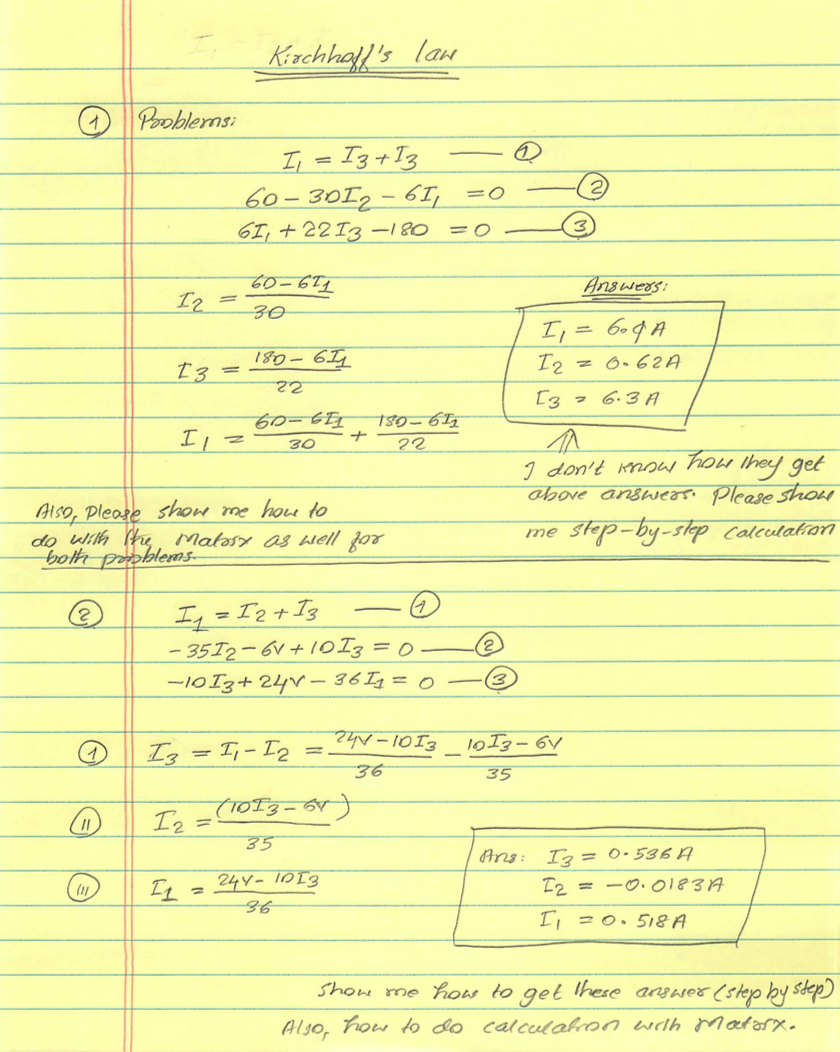 Kirchhoff's law
① Problems:
I₁ = I₃ + I₃ — ①
60 - 30I₂ - 6I₁ = 0 — ②
6I₁ + 22I₃ - 180 = 0 — ③
I₂ = (60 - 6I₁)/30
I₃ = (180 - 6I₁)/22
I₁ = (60 - 6I₁)/30 + (180 - 6I₁)/22
Answers:
I₁ = 6.9A
I₂ = 0.62A
I₃ = 6.3A
I don't know how they get
above answers. Please show
me step-by-step calculation
Also, Please show me how to
do with the Matrix as well for
both problems.
② I₁ = I₂ + I₃ — ①
-35I₂ - 6V + 10I₃ = 0 — ②
-10I₃ + 24V - 36I₁ = 0 — ③
① I₃ = I₁ - I₂ = (24V - 10I₃)/36 - (10I₃ - 6V)/35
(II) I₂ = (10I₃ - 6V)/35
(III) I₁ = (24V - 10I₃)/36
Ans: I₃ = 0.536A
I₂ = -0.0183A
I₁ = 0.518A
show me how to get these answer (step by step)
Also, how to do calculation with Matrix.